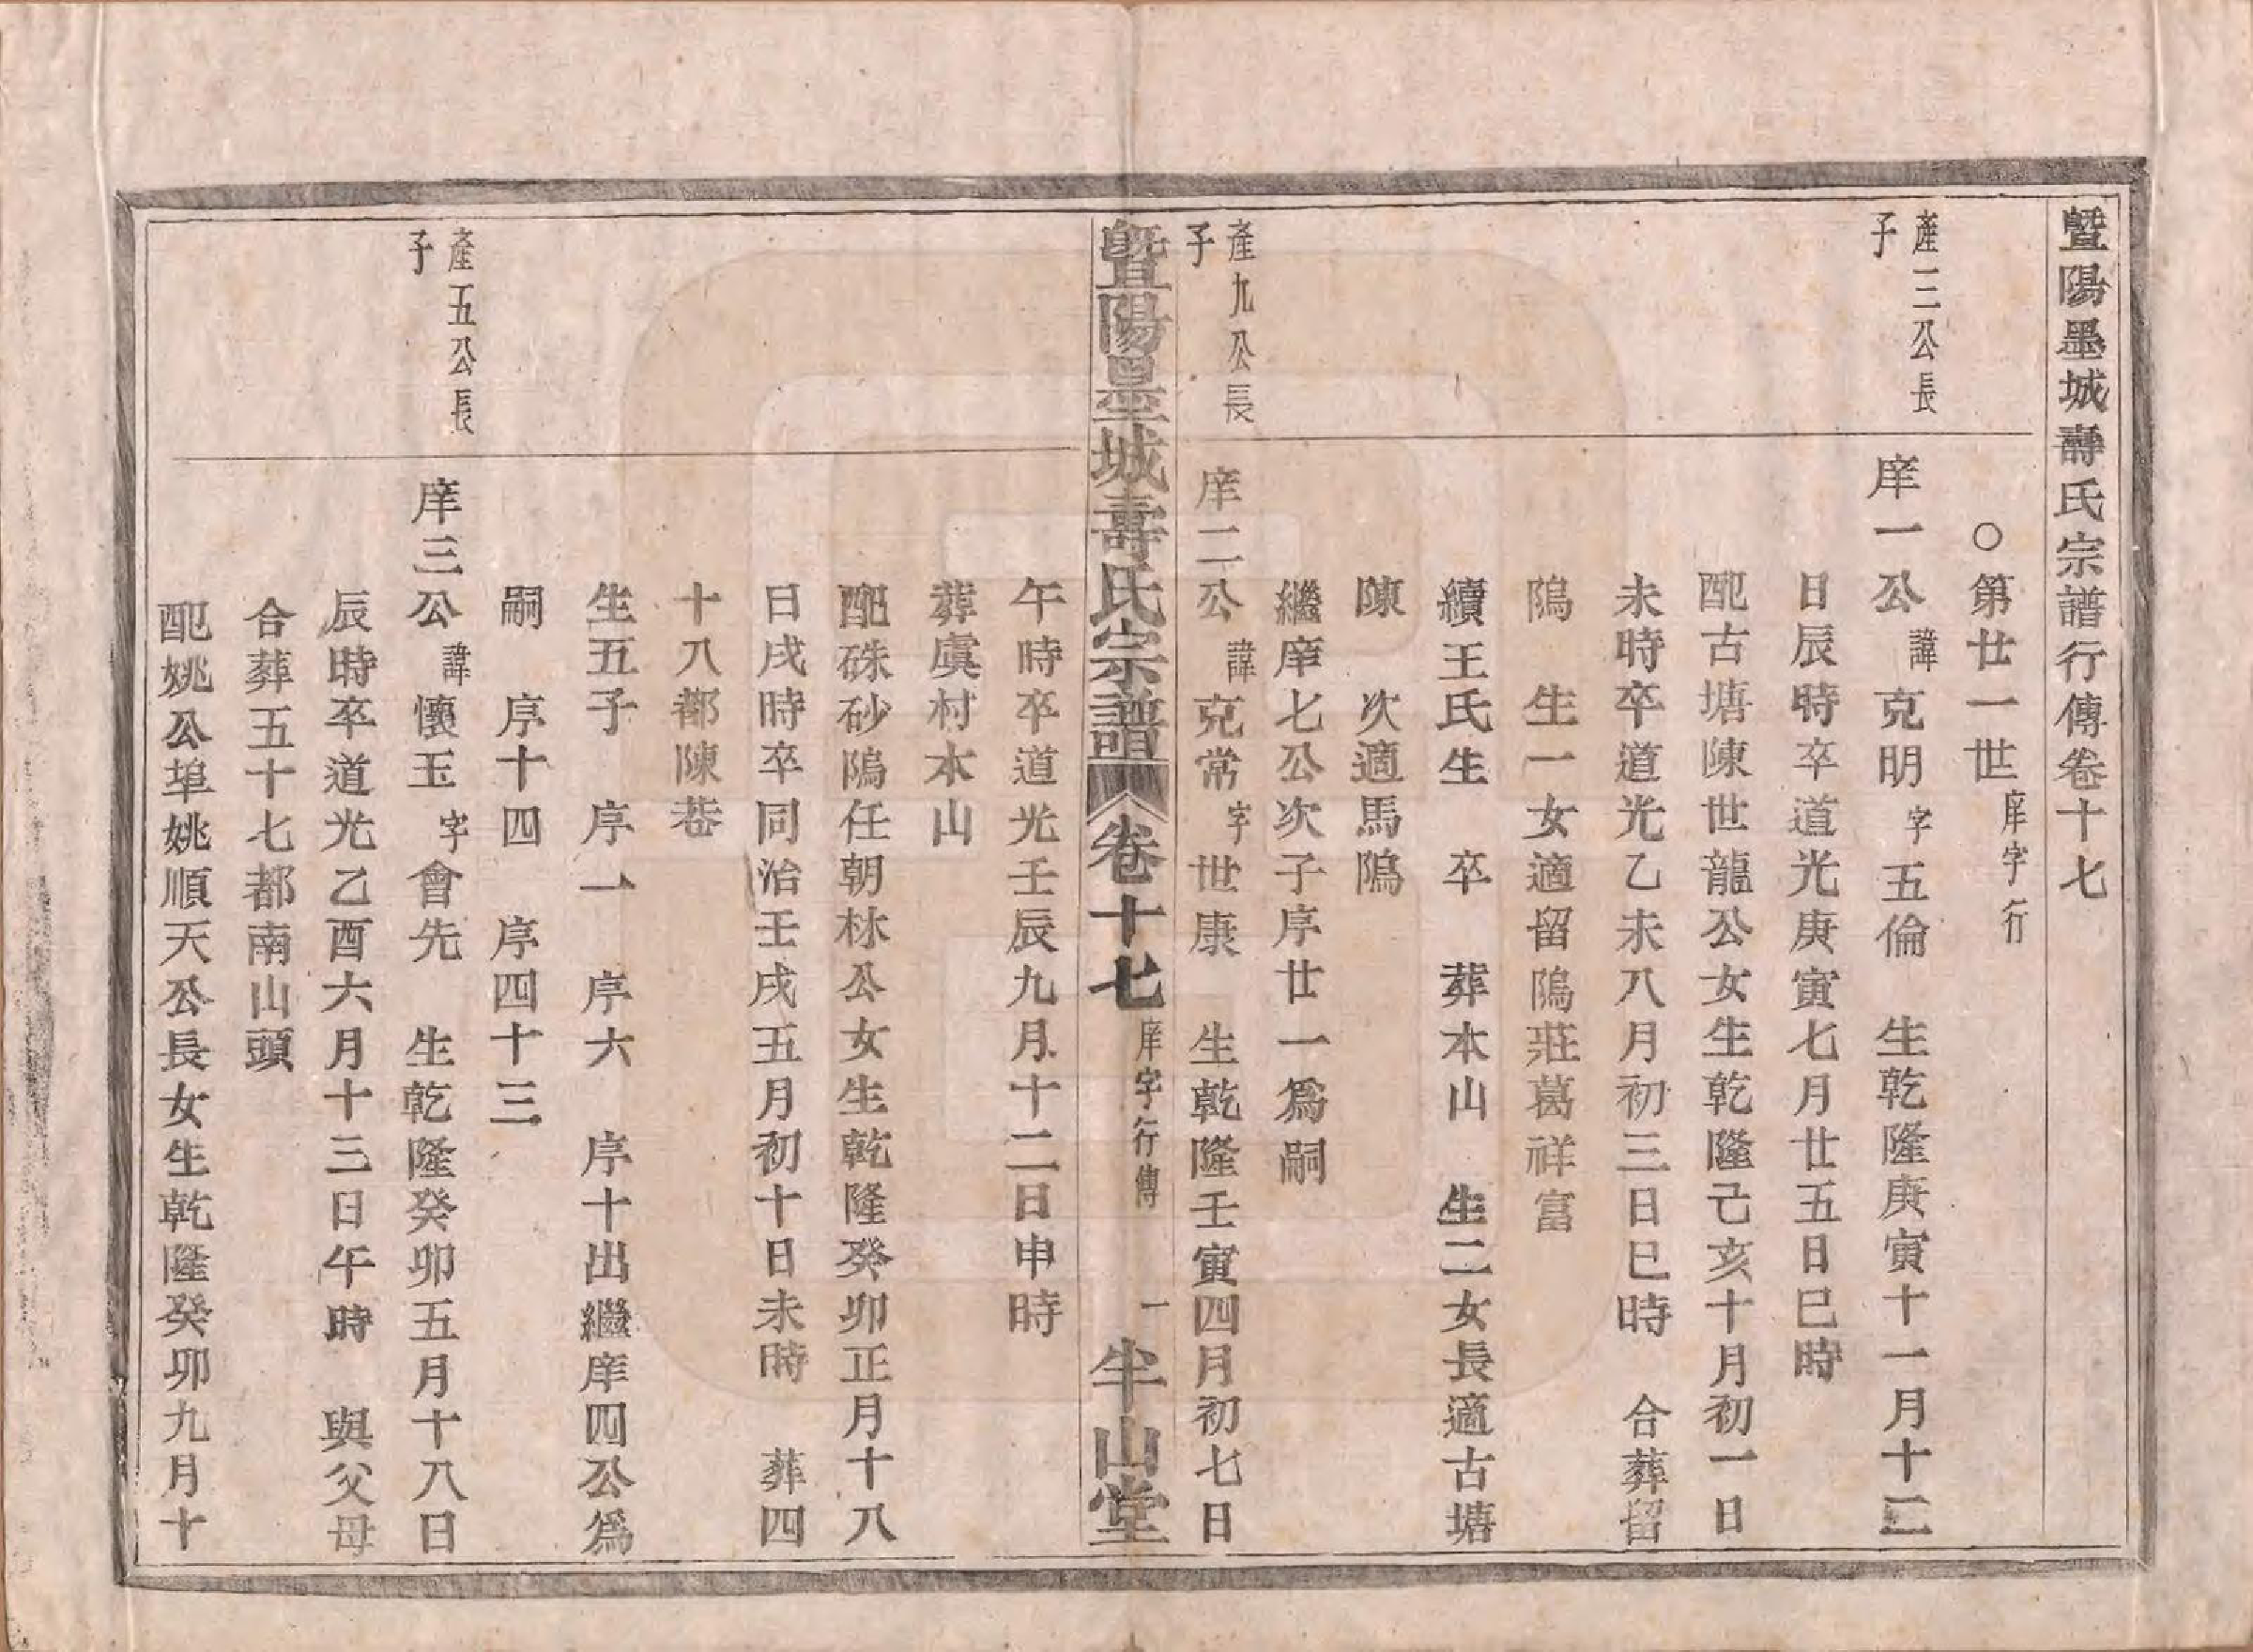 暨陽墨城壽氏宗譜行傳卷十七
○第廿一世庠字行
產三公長子
庠一公諱克明字五倫　生乾隆庚寅十一月十二
日辰時卒道光庚寅七月廿五日巳時
配古塘陳世龍公女生乾隆己亥十月初一日
未時卒道光乙未八月初三日巳時　合葬留
隝　生一女適留隝莊葛祥富
續王氏生　卒　葬本山　生二女長適古塘
陳　次適馬隝
繼庠七公次子序廿一爲嗣
產九公長子
庠二公諱克常字世康　生乾隆壬寅四月初七日
暨陽墨城壽氏宗譜　卷十七　庠字行傳　一　半山堂
午時卒道光壬辰九月十二日申時
葬虞村本山
配硃砂隝任朝林公女生乾隆癸卯正月十八
日戌時卒同治壬戌五月初十日未時　葬四
十八都陳巷
生五子　序一　序六　序十出繼庠四公爲
嗣　序十四　序四十三
產五公長子
庠三公諱懷玉字會先　生乾隆癸卯五月十八日
辰時卒道光乙酉六月十三日午時　與父母
合葬五十七都南山頭
配姚公埠姚順天公長女生乾隆癸卯九月十